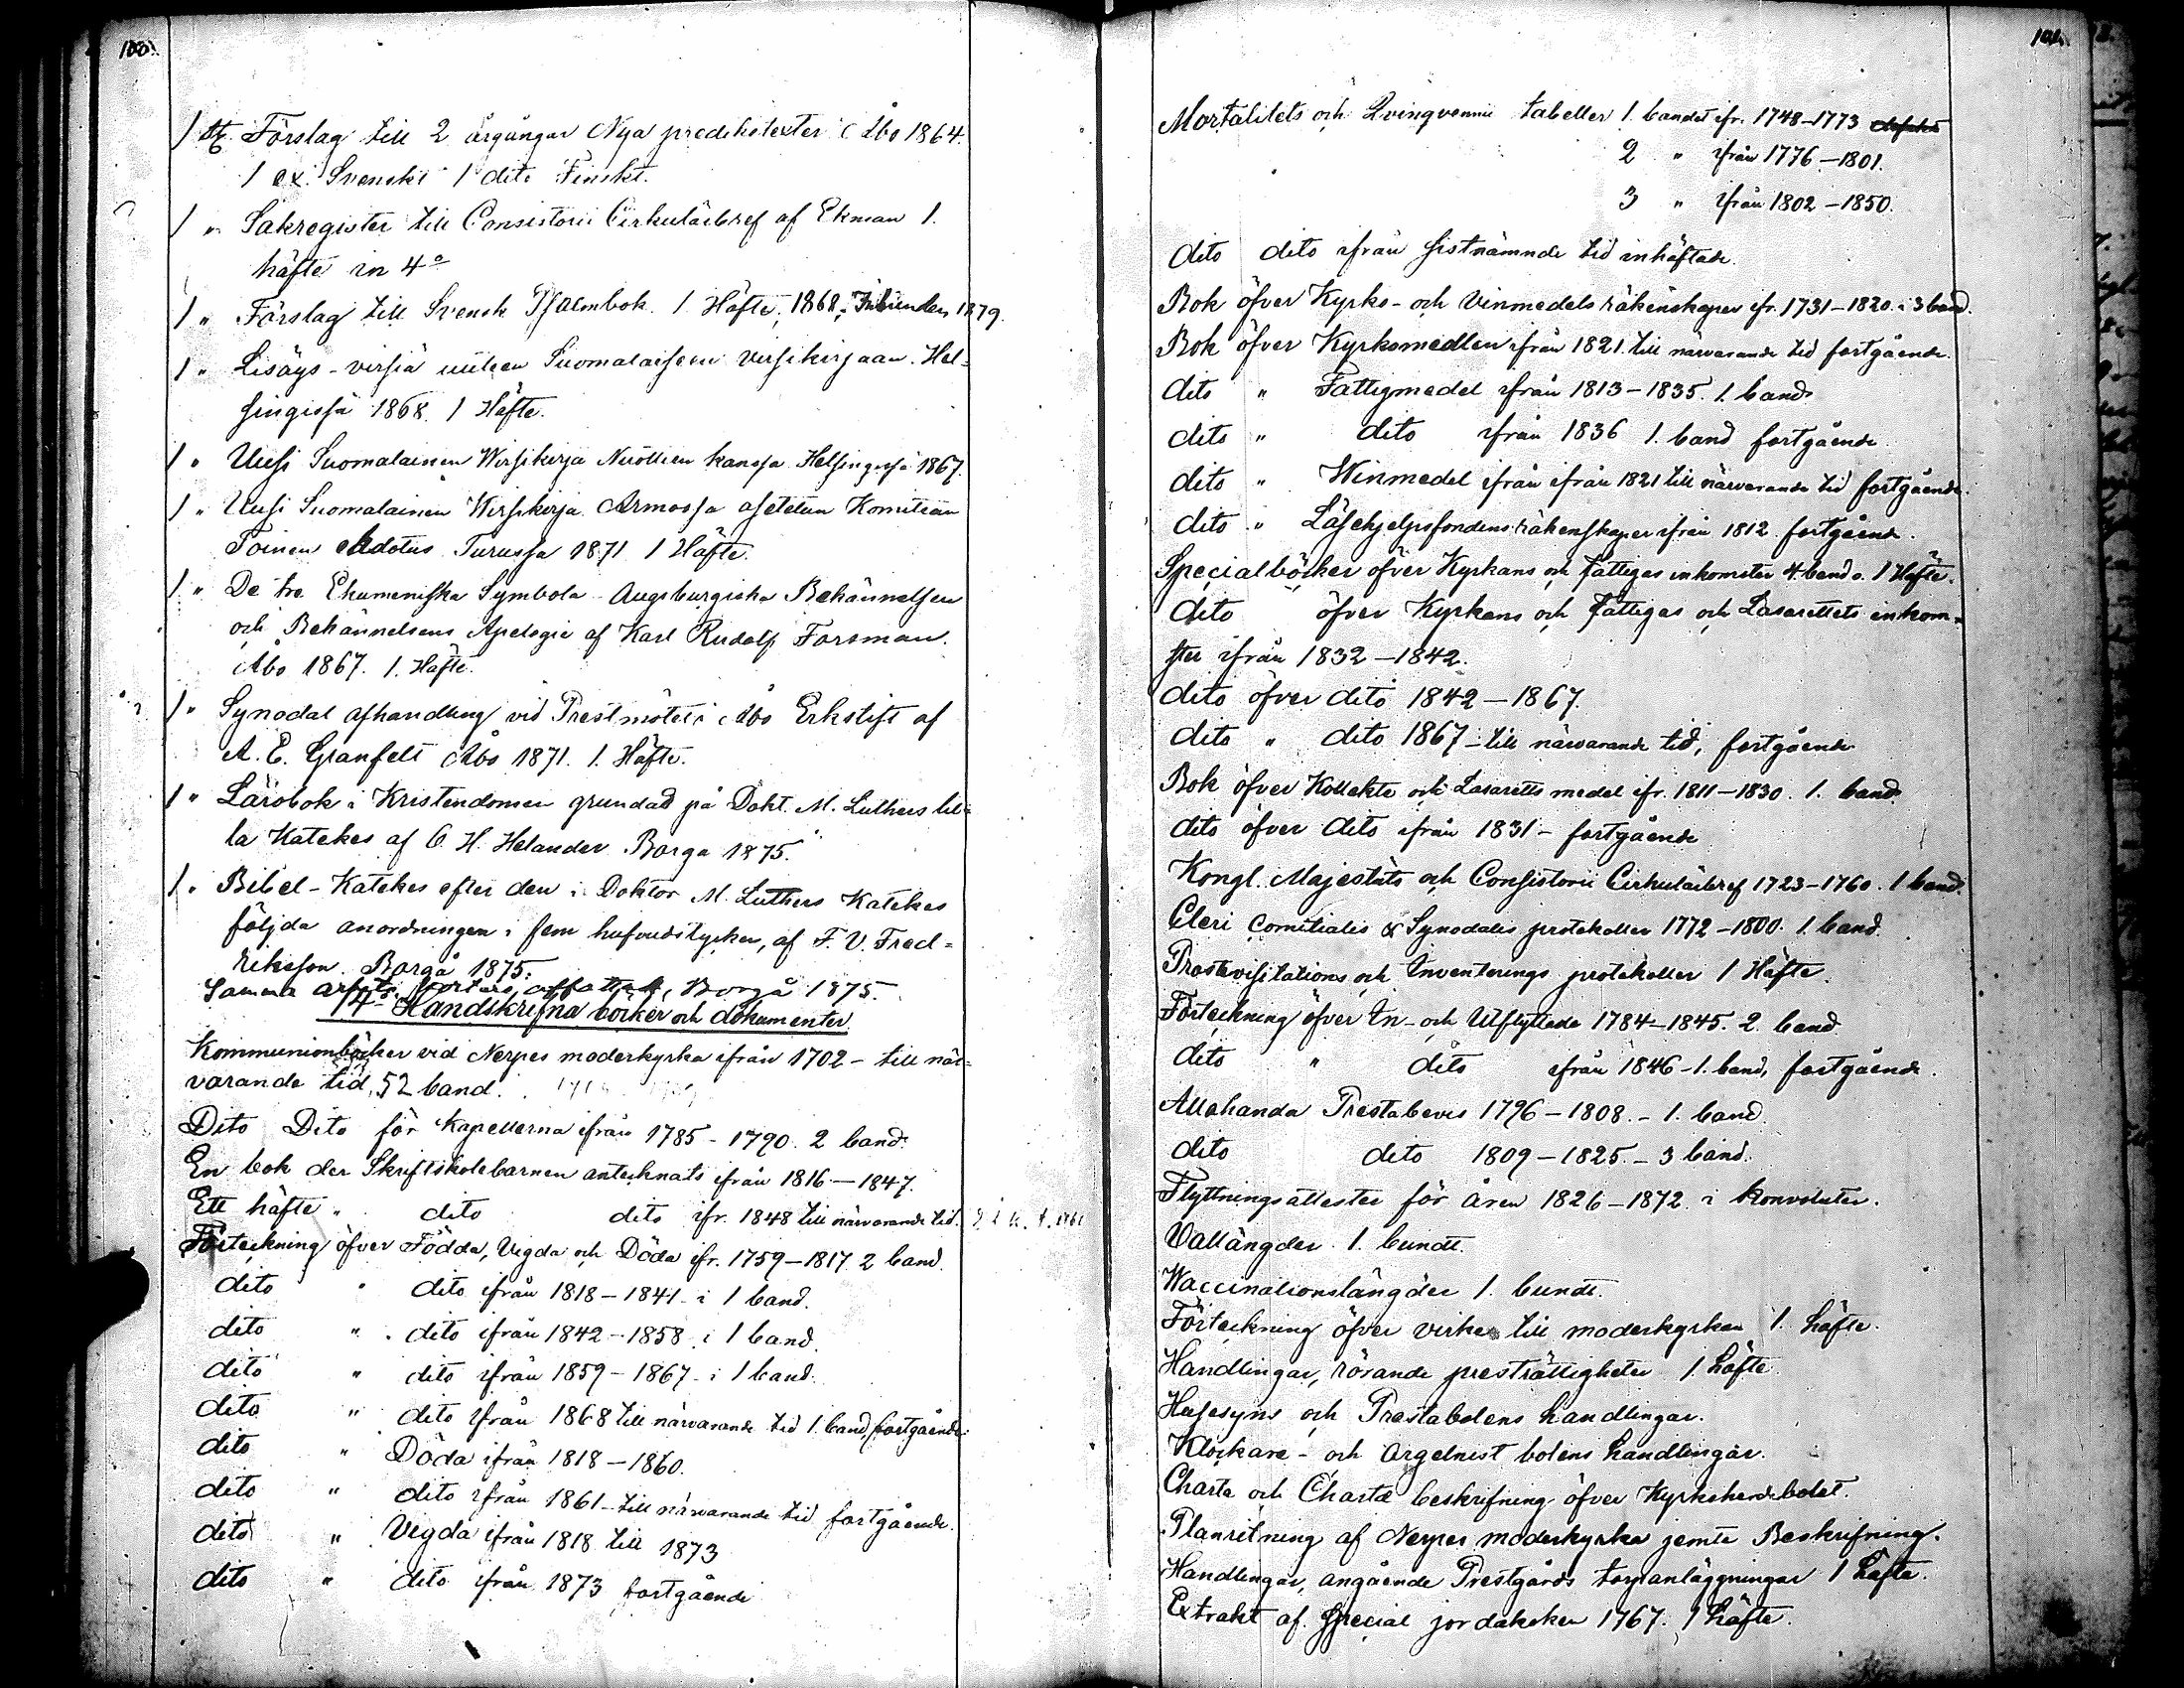 100.
1 st. Förslag till 2 årgångar Nya predikotexter Åbo 1864.
1 ex. Svenskt 1 dito Finskt.
1 " Sakregister till Consistorii Cirkulärbref af Ekman 1.
häfte in 4o
1 " Förslag till Svensk Psalmbok. 1 Häfte, 1868,
1879.
1 " Lisäys-virsiä uuteen Suomalaiseen virsikirjaan. Hel-
singissä 1868. 1 Häfte.
1 " Uusi Suomalainen Wirsikirja Nuottien kanssa Helsingissä 1867.
1 " Uusi Suomalainen Wirsikirja Armossa asetetun Komitean
Toinen ehdotus Turussa 1871 1 Häfte.
1 " De tre Ekumeniska Symbola Augsburgiska Bekännelsen
och Bekännelsens Apologie af Karl Rudolf Forsman.
Åbo 1867. 1. Häfte.
1 " Synodal afhandling vid Prestmötet i Åbo Erkstift af
A. E. Granfelt Åbo 1871. 1. Häfte.
1 " Lärobok i Kristendomen grundad på Dokt. M. Luthers lil-
la Katekes af O. H. Helander Borga 1875.
1 " Bibel-Katekes efter den i Doktor M. Luthers Katekes
följda anordningen i fem hufvudstycken, af F. V. Fred-
rikson. Borgå 1875.
Samma arbete, kortare affattadt, Borgå 1875.
14o Handskrifna böcker och dokumenter.
Kommunionböcker vid Nerpes moderkyrka ifrån 1702 - till när-
varande tid, 52 band.
Dito Dito för Kapellerna ifrån 1785 - 1790. 2 band.
En bok der Skriftskolebarnen antecknats ifrån 1816 - 1847.
Ett häfte " dito dito ifr. 1848 till närvarande tid.
Förteckning öfver Födda, Vigda och Döda ifr. 1759-1817 2 band.
dito " dito ifrån 1818-1841 i 1 band.
dito " dito ifrån 1842-1858 i 1 band.
dito " dito ifrån 1859-1867 i 1 band.
dito " dito ifrån 1868 till närvarande tid 1. band, fortgående.
dito " Döda ifrån 1818-1860.
dito " dito ifrån 1861-till närvarande tid fortgående.
dito " Vigda ifrån 1818 till 1873
dito " dito ifrån 1873 fortgående
Mortalitets och Qvinqvennii tabeller 1. bandet ifr. 1748-1773
2 " ifrån 1776-1801.
3 " ifrån 1802-1850.
dito dito ifrån sistnämnde tid inhäftade.
Bok öfver Kyrko- och Vinmedels räkenskaper ifr. 1731-1820. i 3 band.
Bok öfver Kyrkomedlen ifrån 1821. till närvarande tid fortgående.
dito " Fattigmedel ifrån 1813-1835. 1. band
dito " dito ifrån 1836 1. band fortgående
dito " Winmedel ifrån ifrån 1821 till närvarande tid fortgående.
dito " Läsehjelpsfondens räkenskaper ifrån 1812. fortgående.
Specialböcker öfver Kyrkans och fattigas inkomster 4. band o. 1 Häfte.
dito öfver Kyrkans och fattigas och Lasarettets inkom-
ster ifrån 1832-1842.
dito öfver dito 1842-1867.
dito " dito 1867-till närvarande tid, fortgående
Bok öfver Kollekte och Lasaretts medel ifr. 1811-1830. 1. band.
dito öfver dito ifrån 1831 - fortgående
Kongl. Majestäts och Consistorii Cirkulärbref 1723-1760. 1 band.
Cleri comitialis & Synodalis protokoller 1772-1800. 1. band.
Prostevisitations och Inventerings protokoller 1 Häfte.
Förteckning öfver In- och Utflyttade 1784-1845. 2. band
dito " dito ifrån 1846-1. band, fortgående.
Allahanda Prestabevis 1796-1808.- 1. band.
dito dito 1809-1825.- 3 band.
Flyttningsattester för åren 1826-1872. i konvoluter.
Vallängder 1. bundt.
Waccinationslängder 1. bundt.
Förteckning öfver virke till moderkyrkan 1. häfte.
Handlingar, rörande presträttigheter 1. häfte.
Husesyns och Prestabolens handlingar.
Klockare- och orgelnist bolens handlingar.
Charta och Chartæ beskrifning öfver Kyrkoherdebolet.
Planritning af Nerpes moderkyrka jemte Beskrifning.
Handlingar, angående Prestgårds torpanläggningar 1 häfte.
Extrakt af special jordaboken 1767. 1 häfte.